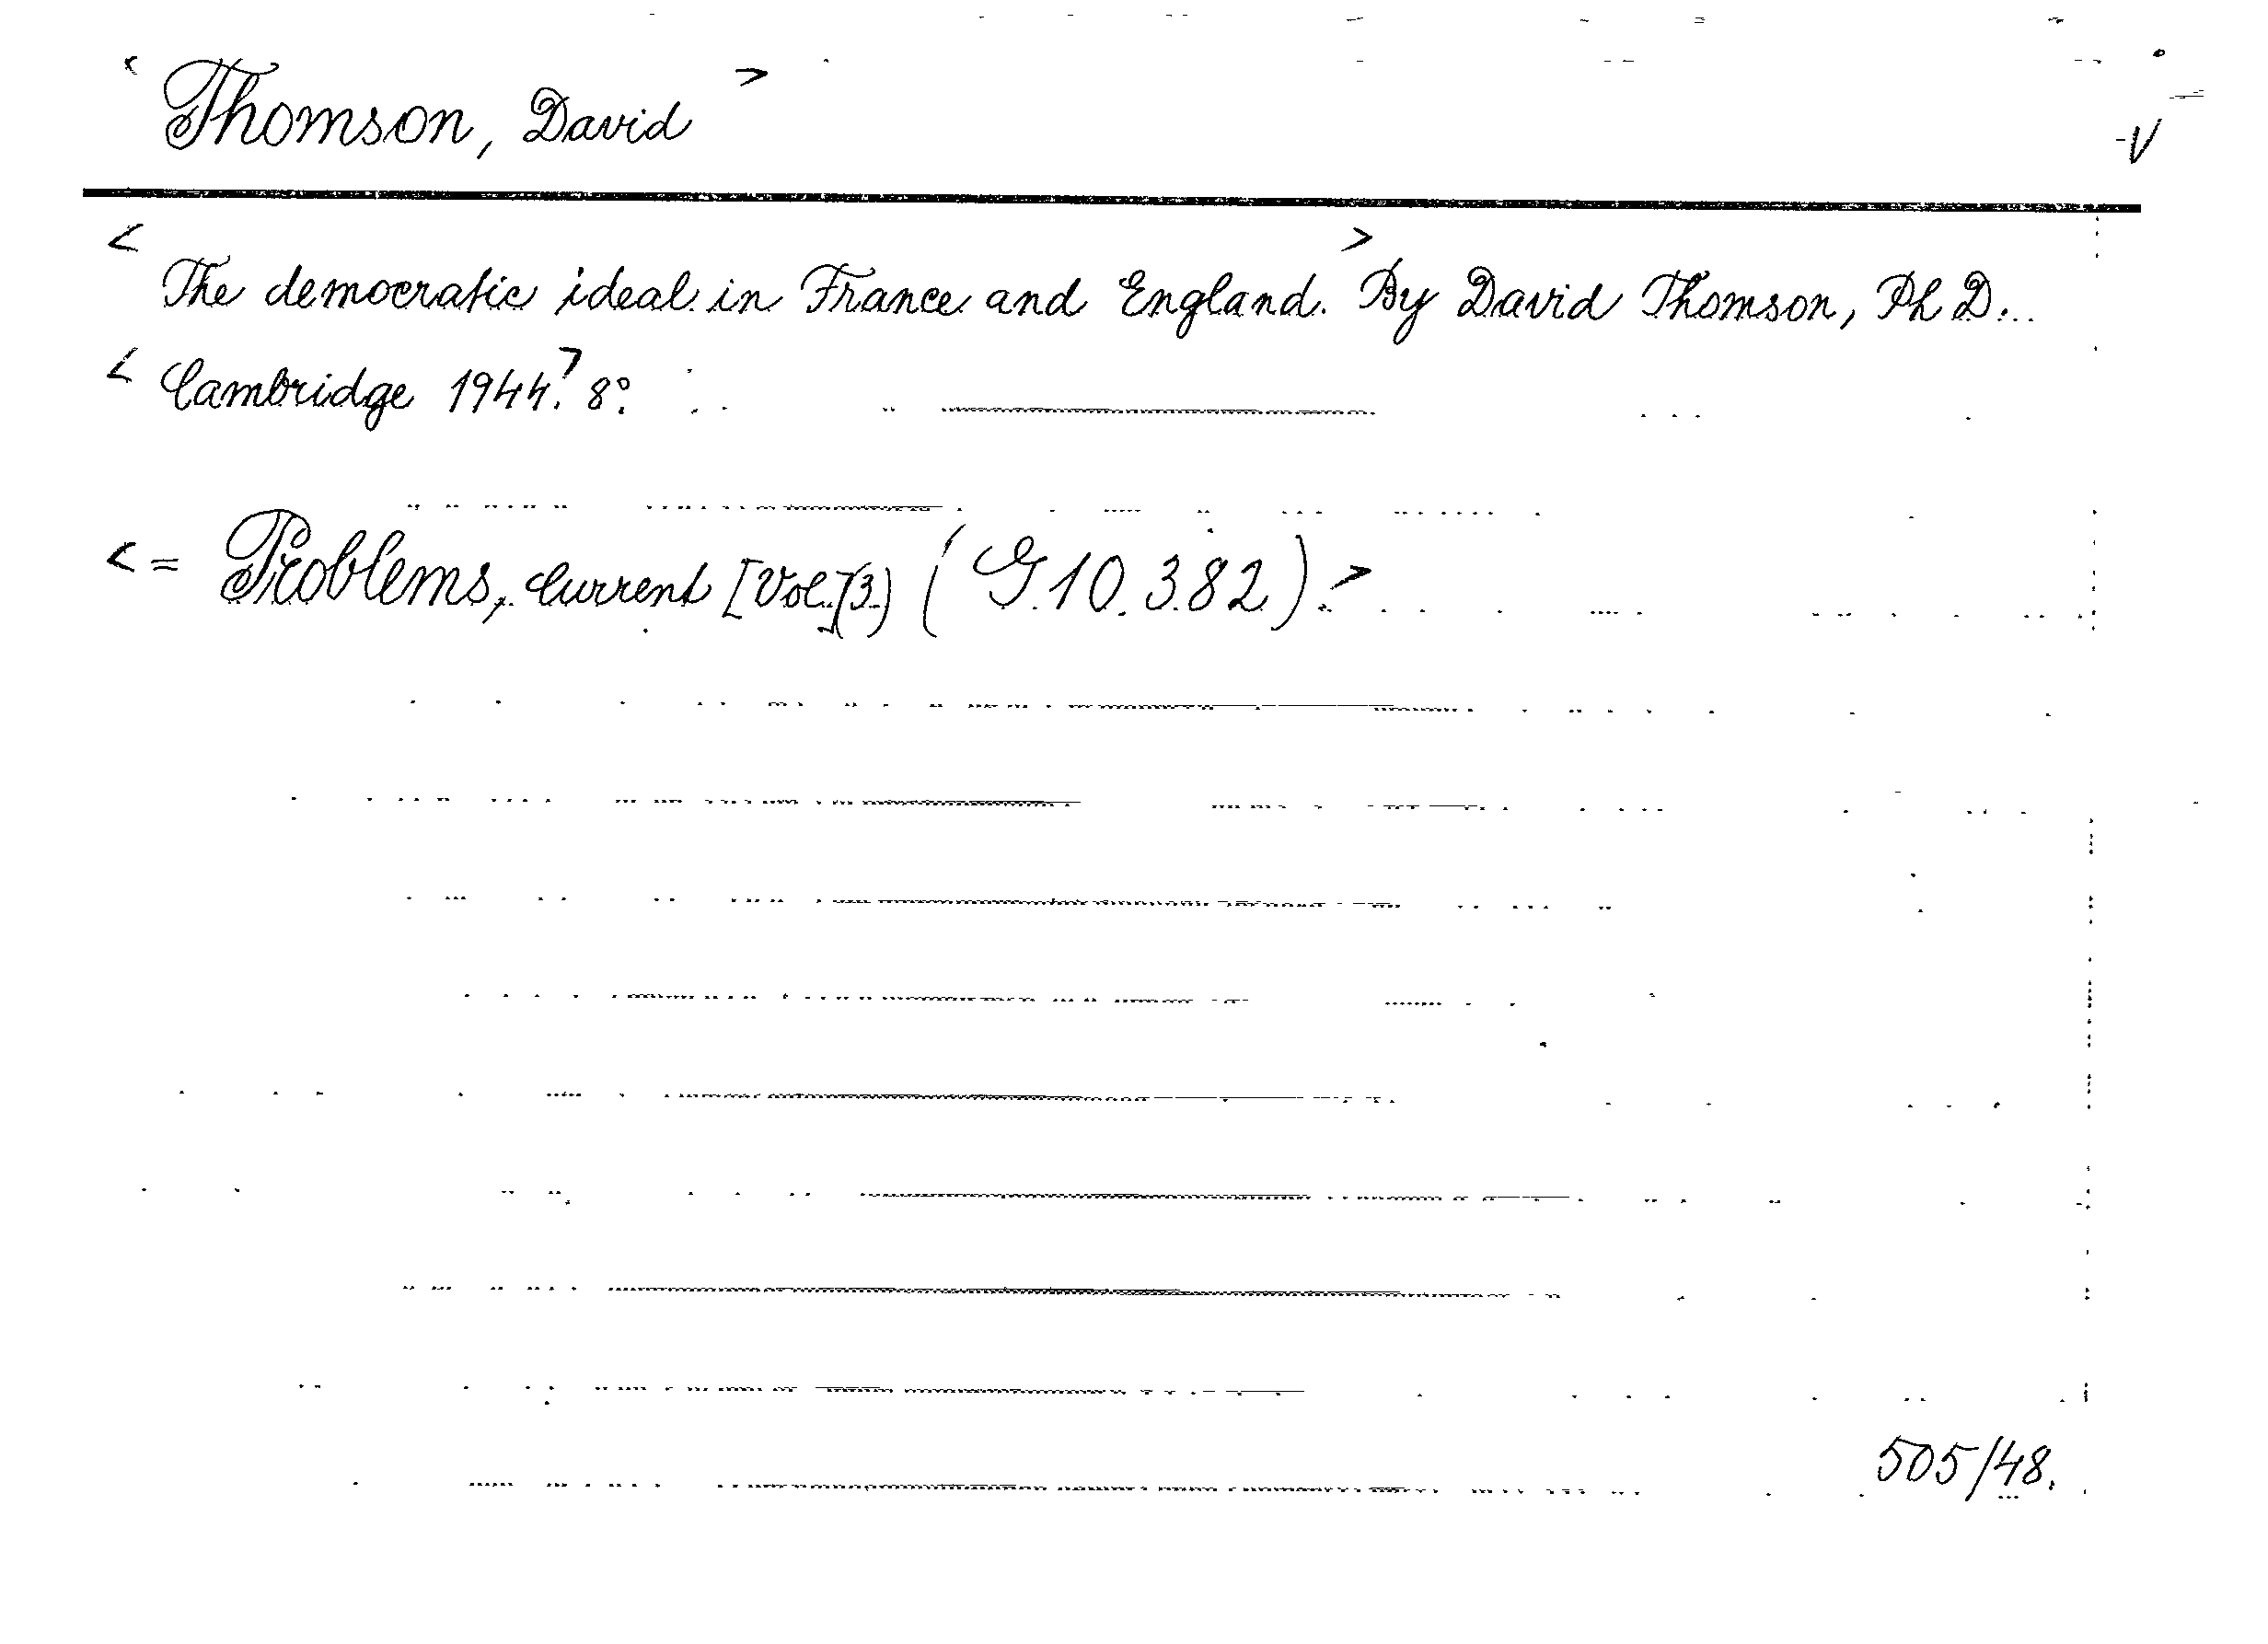 < Thomson, David >
V
< The democratic ideal in France and England. > By David Thomson, Ph D...
< Cambridge 1944. > 8°.
< = Problems, Current [Vol.](3.) (G.10.382). >
505/48.